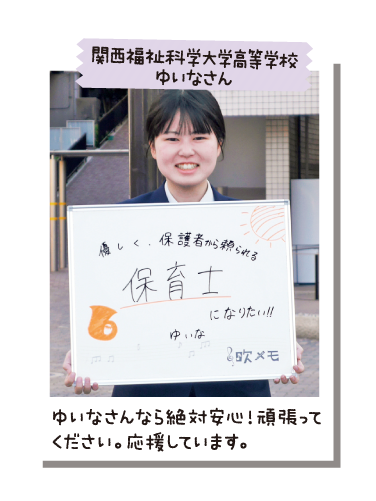 関西福祉科学大学高等学校
ゆいなさん
優しく、保護者から頼られる
保育士
になりたい!!
ゆいな
吹メモ
ゆいなさんなら絶対安心!頑張って
ください。応援しています。